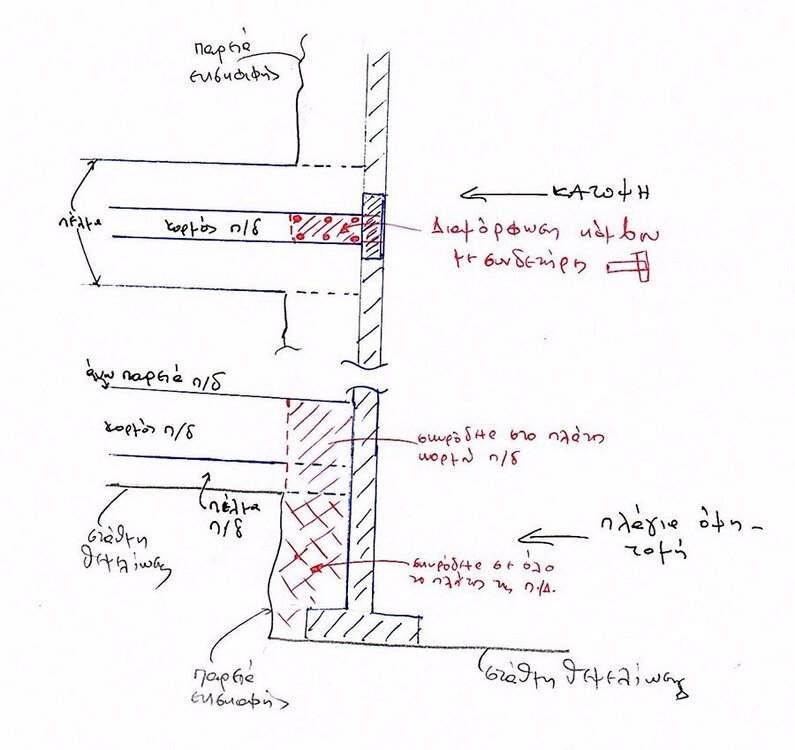 παρειά
εκσκαφής
ΚΑΤΟΨΗ
πέλμα
κορμός π/δ
Διαμόρφωση κόμβου
με συνδετήρες
άνω παρειά π/δ
κορμός π/δ
σκυρόδεμα στο πλάτος
κορμού π/δ
πέλμα
π/δ
στάθμη
θεμελίωσης
πλάγια όψη -
τομή
σκυρόδεμα σε όλο
το πλάτος της π/δ.
παρειά
εκσκαφής
στάθμη θεμελίωσης